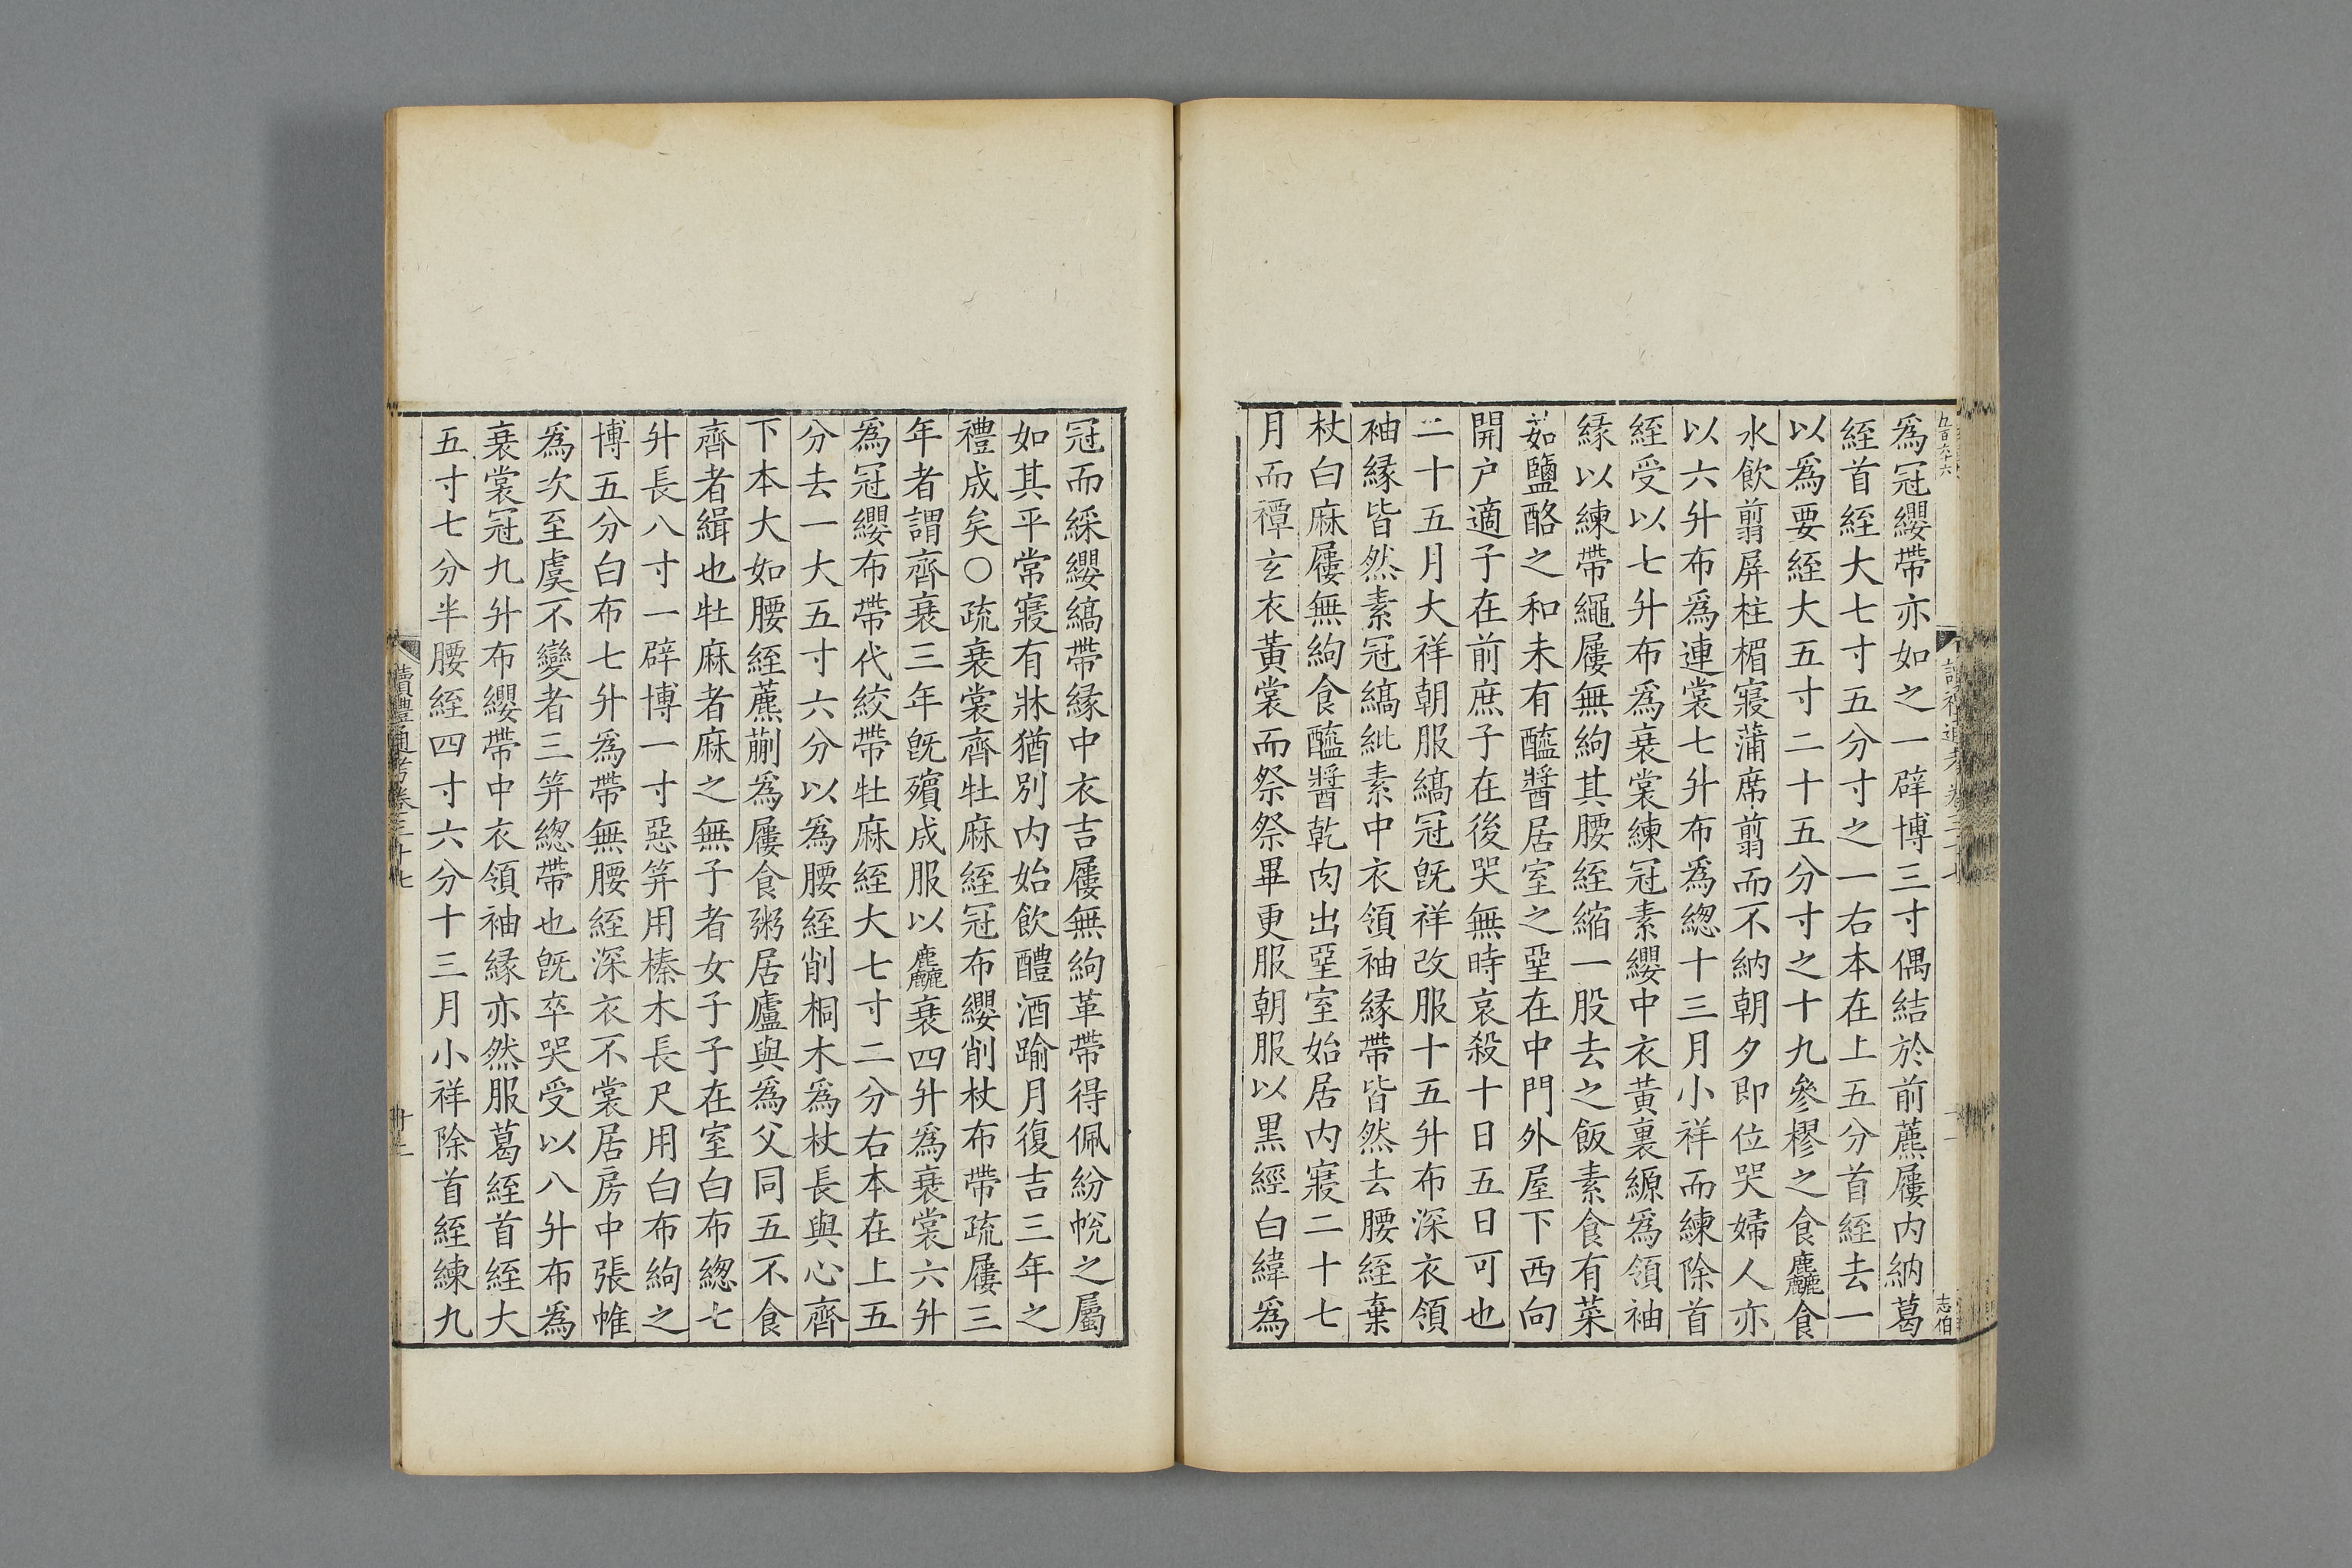 九百六十六
讀禮通考卷三十七
志伯
爲冠纓帶亦如之一辟博三寸偶結於前藨屨内納葛
絰首絰大七寸五分寸之一右本在上五分首絰去一
以爲要絰大五寸二十五分寸之十九參樛之食麤食
水飲翦屏柱楣寢蒲席翦而不納朝夕即位哭婦人亦
以六升布爲連裳七升布爲緫十三月小祥而練除首
絰受以七升布爲衰裳練冠素纓中衣黃裏縓爲領袖
緣以練帶繩屨無絇其腰絰縮一股去之飯素食有菜
茹鹽酪之和未有醯醬居室之堊在中門外屋下西向
開户適子在前庶子在後哭無時哀殺十日五日可也
二十五月大祥朝服縞冠旣祥改服十五升布深衣領
袖緣皆然素冠縞紕素中衣領袖緣帶皆然去腰絰棄
杖白麻屨無絇食醯醬乾肉出堊室始居内寢二十七
月而禫玄衣黃裳而祭祭畢更服朝服以黑經白緯爲
冠而綵纓縞帶緣中衣吉屨無絇革帶得佩紛帨之屬
如其平常寢有牀猶別内始飲醴酒踰月復吉三年之
禮成矣○疏衰裳齊牡麻絰冠布纓削杖布帶疏屨三
年者謂齊衰三年旣殯成服以麤衰四升爲衰裳六升
爲冠纓布帶代絞帶牡麻絰大七寸二分右本在上五
分去一大五寸六分以爲腰絰削桐木爲杖長與心齊
下本大如腰絰藨蒯爲屨食粥居廬與爲父同五不食
齊者緝也牡麻者麻之無子者女子子在室白布緫七
升長八寸一辟博一寸惡筓用榛木長尺用白布絇之
博五分白布七升爲帶無腰絰深衣不裳居房中張帷
爲次至虞不變者三筓緫帶也旣卒哭受以八升布爲
衰裳冠九升布纓帶中衣領袖緣亦然服葛絰首絰大
五寸七分半腰絰四寸六分十三月小祥除首絰練九
讀禮通考卷三十七